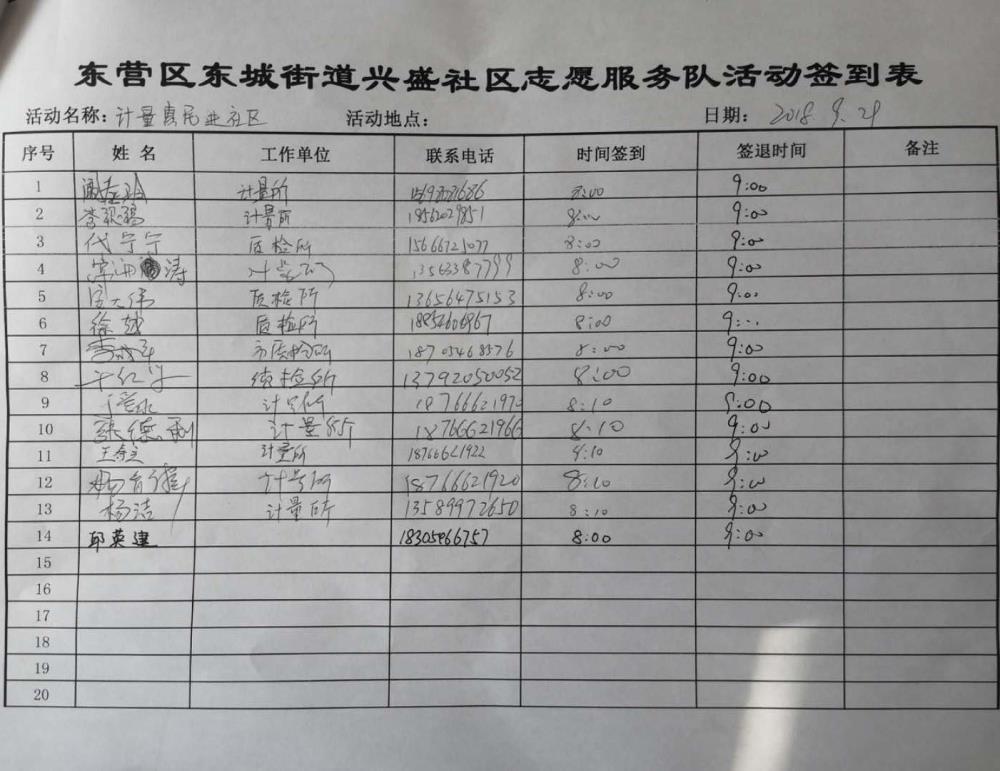 东营区东城街道兴盛社区志愿服务队活动签到表
活动名称: 计量惠民进社区 活动地点: 日期: 2018. 9. 29
序号 姓名 工作单位 联系电话 时间签到 签退时间 备注
1 计量所 8:00 9:00
2 计量所 18562029851 8:00 9:00
3 代宁宁 质检所 15666725077 8:00 9:00
4 常海涛 计量所 13563387799 8:00 9:00
5 质检所 13656475153 8:00 9:00
6 徐越 质检所 8:00 9:00
7 市质检所 18705468576 8:00 9:00
8 质检所 13792050052 8:00 9:00
9 计量所 1876662197 8:10 9:00
10 张德利 计量所 18766621966 8:10 9:00
11 计量所 18766621922 8:10 9:00
12 计量所 18766621920 8:10 9:00
13 杨洁 计量所 13589972650 8:10 9:00
14 邱英建 18305466757 8:00 9:00
15
16
17
18
19
20